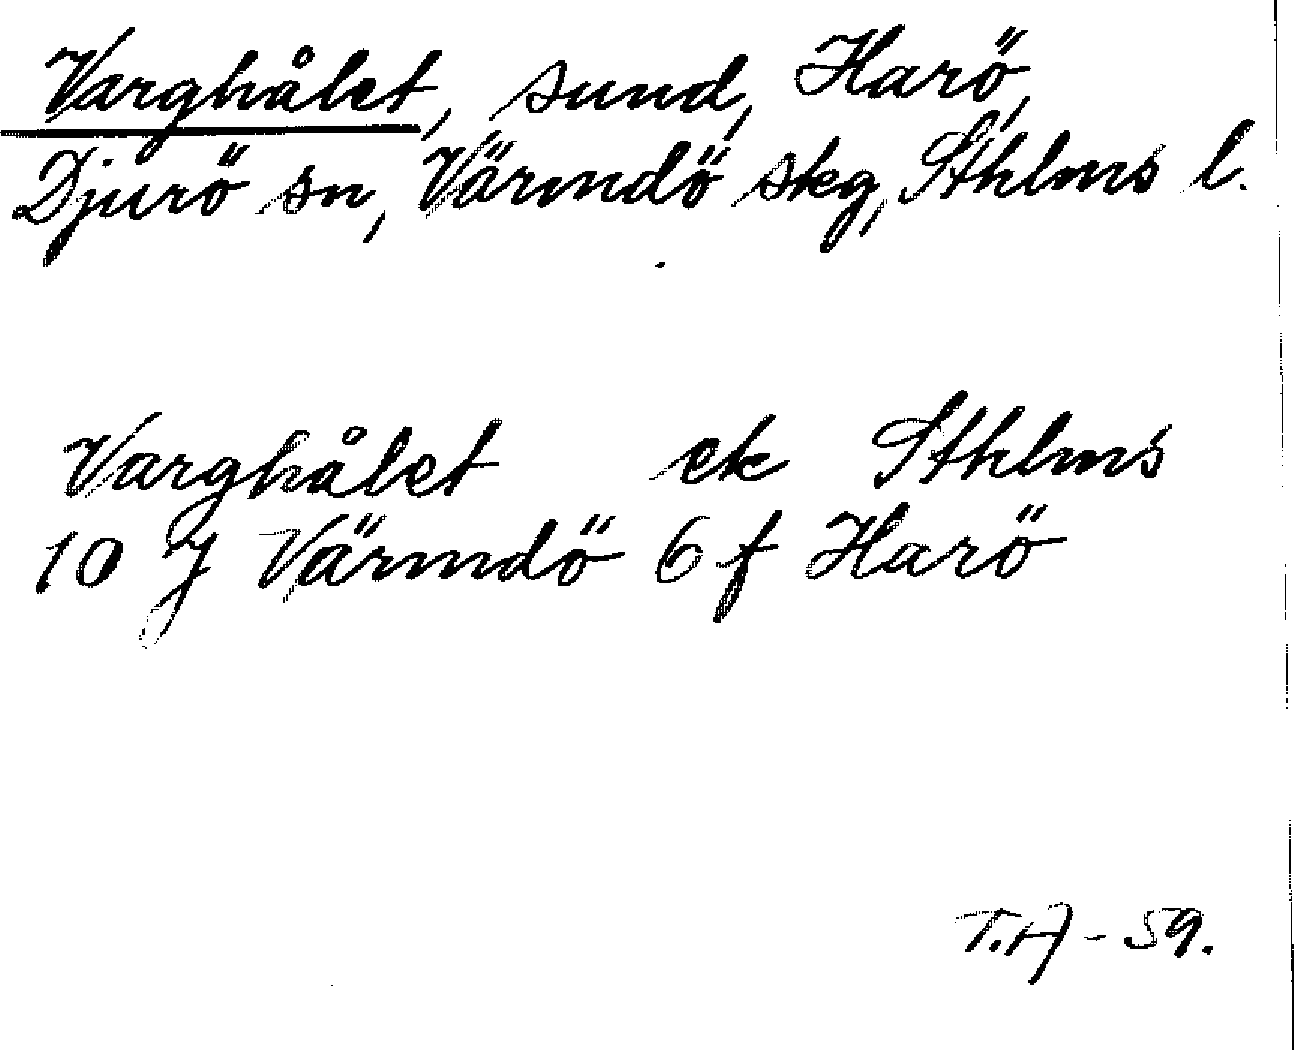 Varghålet, sund, Harö,
Djurö sn, Värmdö skg, Sthlms l.
Varghålet ek Sthlms
10 J Värmdö 6 f Harö
T.A - 59.